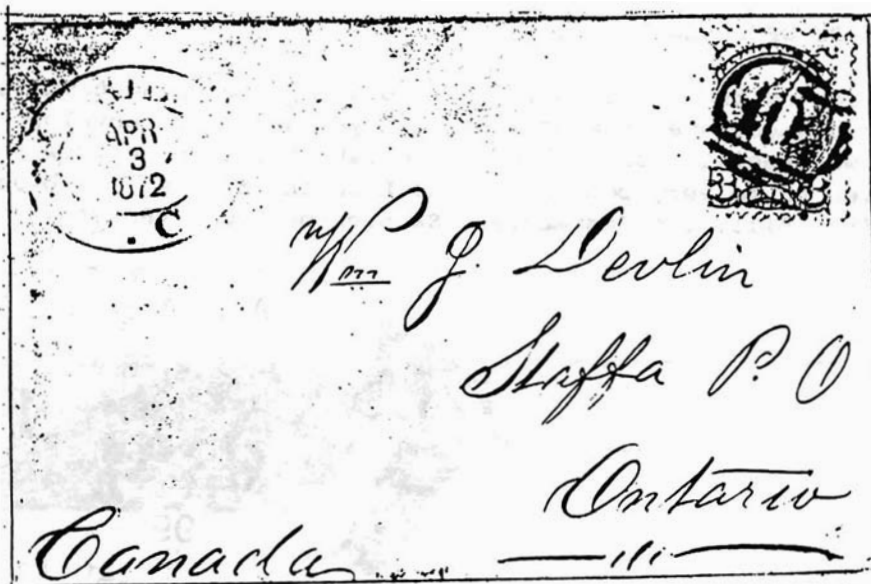 APR
3
1872
. C
3 3
Wm J. Devlin
Staffa P. O
Ontario
Canada